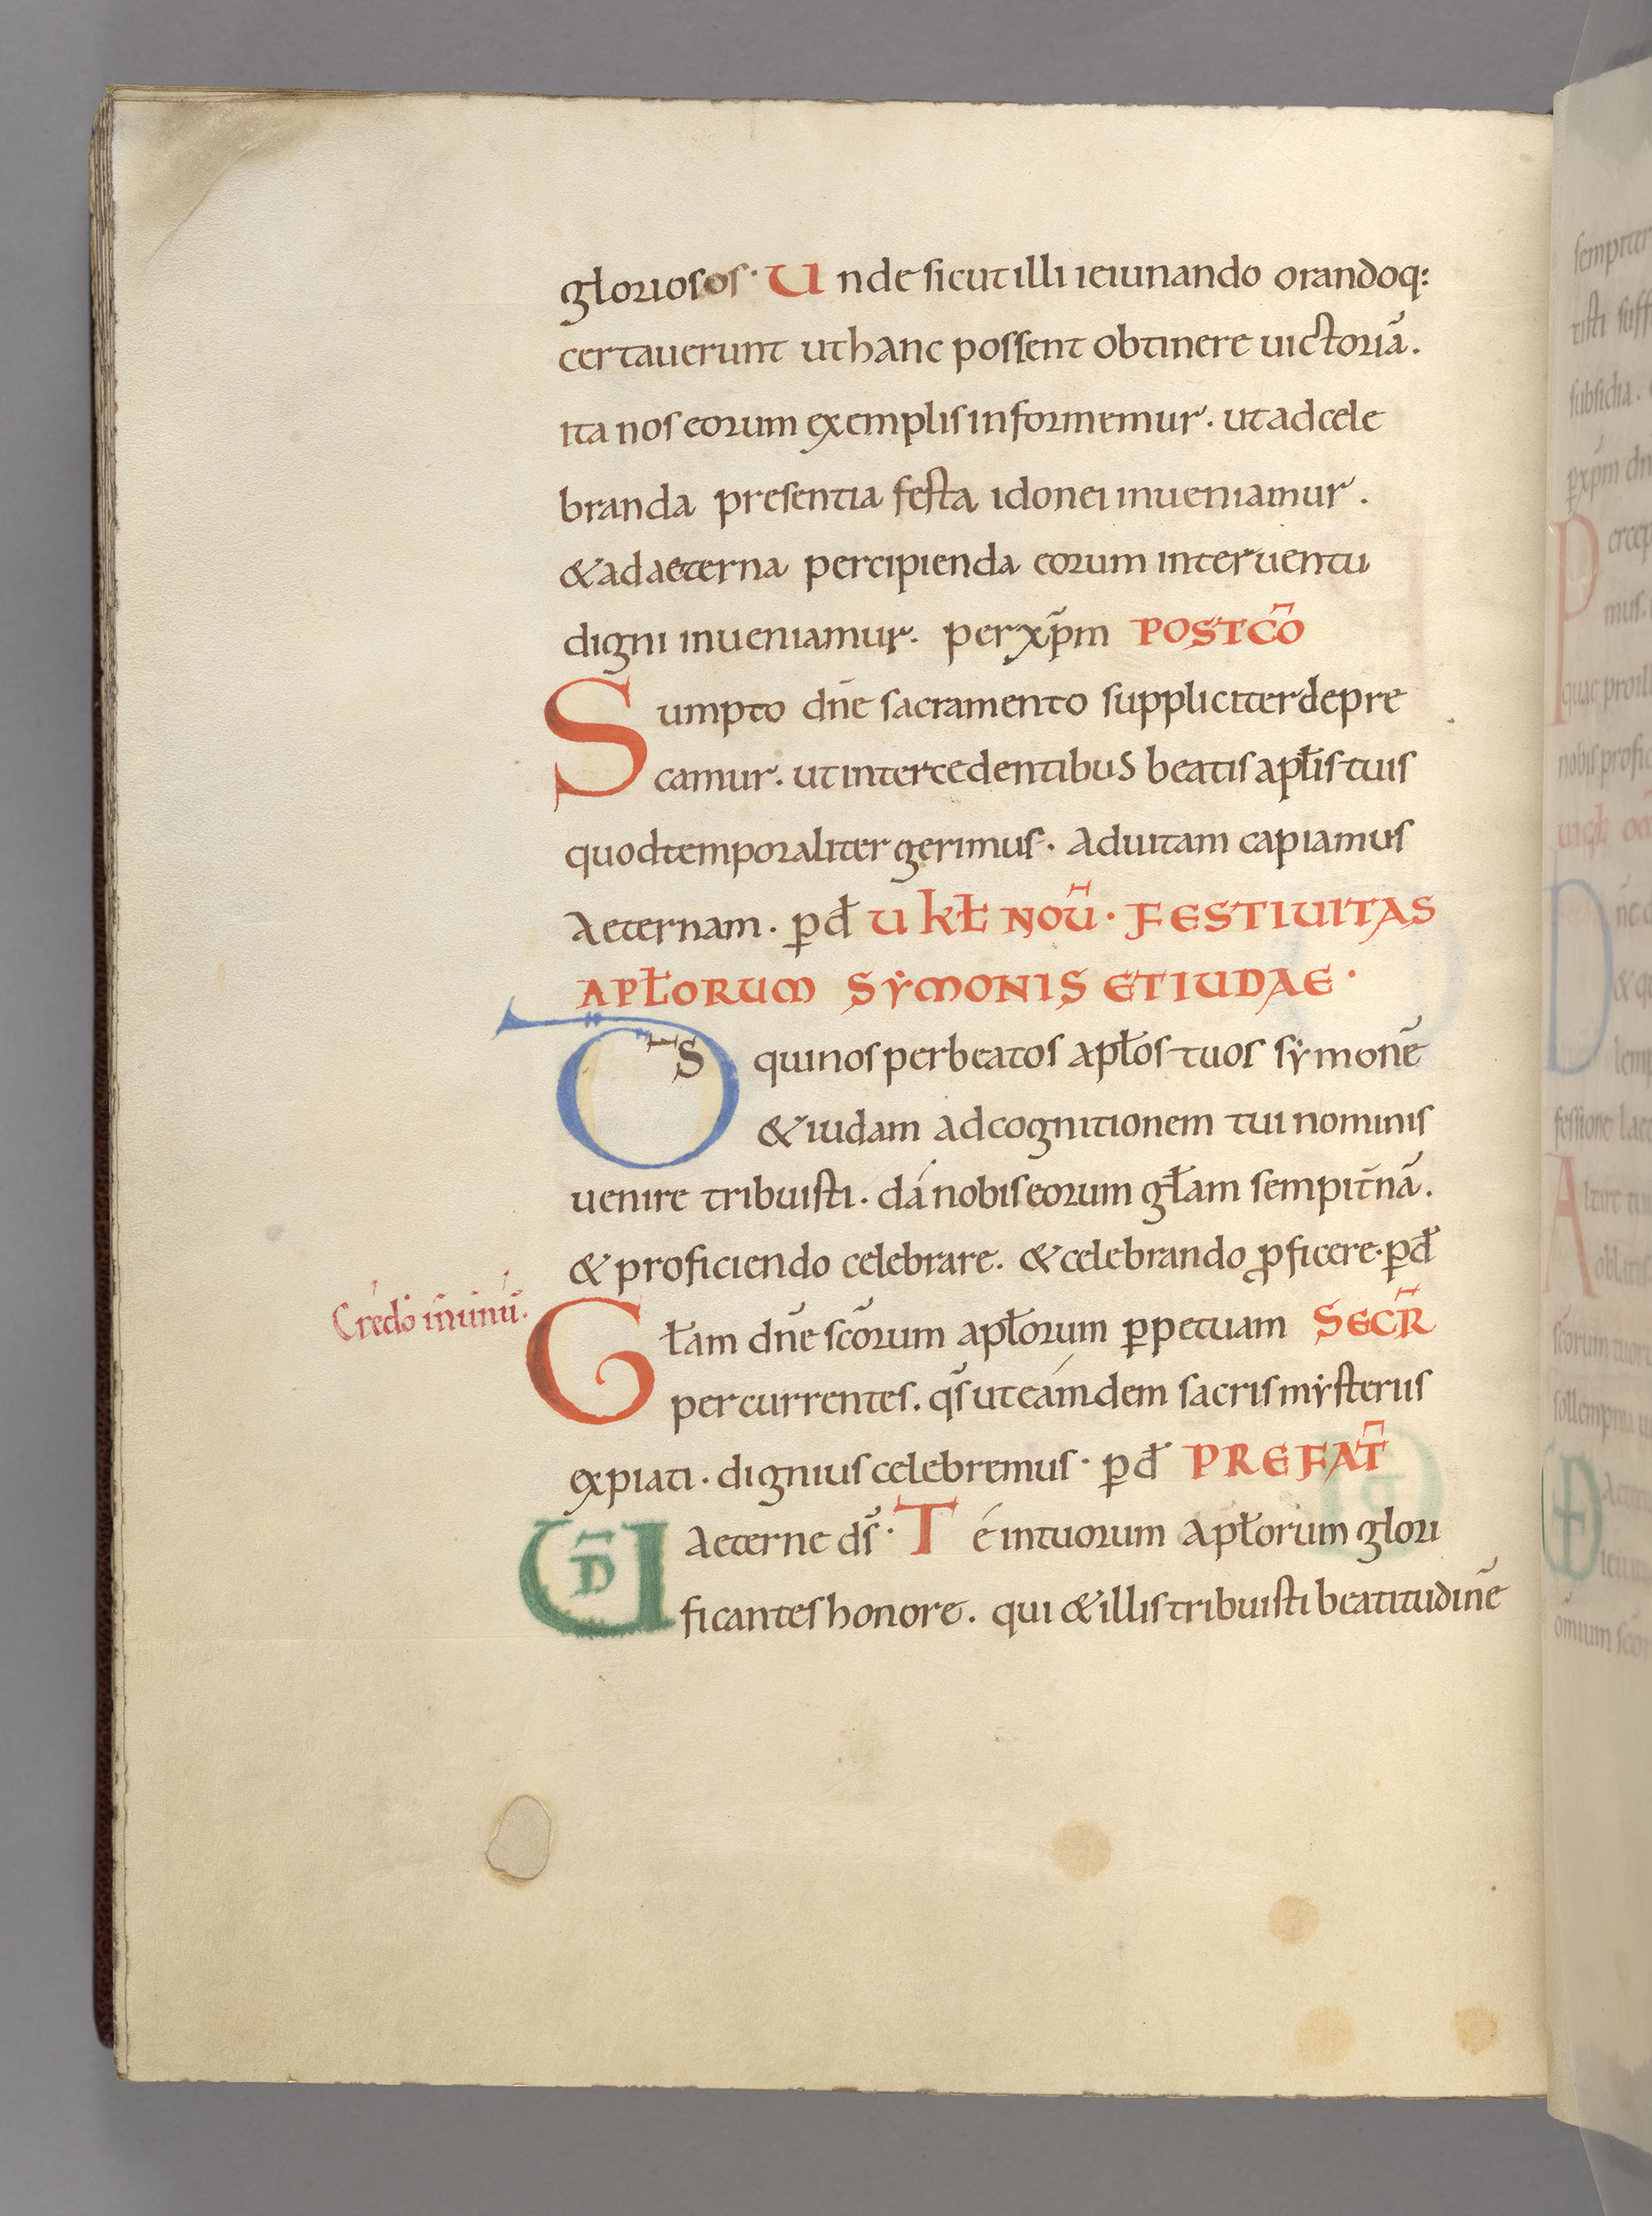 głoriosos · Unde sicut illi ieiunando orandoq:
certauerunt ut hanc possent obtinere uictoriā.
ita nos eorum exemplis informemur. ut ad cele
branda presentia festa idonei inueniamur.
& ad aeterna percipienda eorum interuentu
digni inueniamur. per xp̄m POSTCŌ
Sumpto dn̄e sacramento suppliciter depre
camur. ut intercedentibus beatis apłis tuis
quod temporaliter gerimus. ad uitam capiamus
aeternam. p̄ đ U kł NOŪ · FESTIUITAS
APŁORUM SẎMONIS ET IUDAE ·
D̄s qui nos per beatos apłos tuos sẏmonē
& iudam ad cognitionem tui nominis
uenire tribuisti. dá nobis eorum głam sempit̄nā.
& proficiendo celebrare. & celebrando ꝓficere. p̄ đ
Credo in unū.
Głam dn̄e sc̄orum apłorum ꝑpetuam SECR̄
percurrentes. qs̄ ut eámdem sacris mẏsteriis
expiati. dignius celebremus · p̄ đ PREFAT̄
UD̄ aeterne ds̄ · Té in tuorum apłorum glori
ficantes honore. qui & illis tribuisti beatitudinē